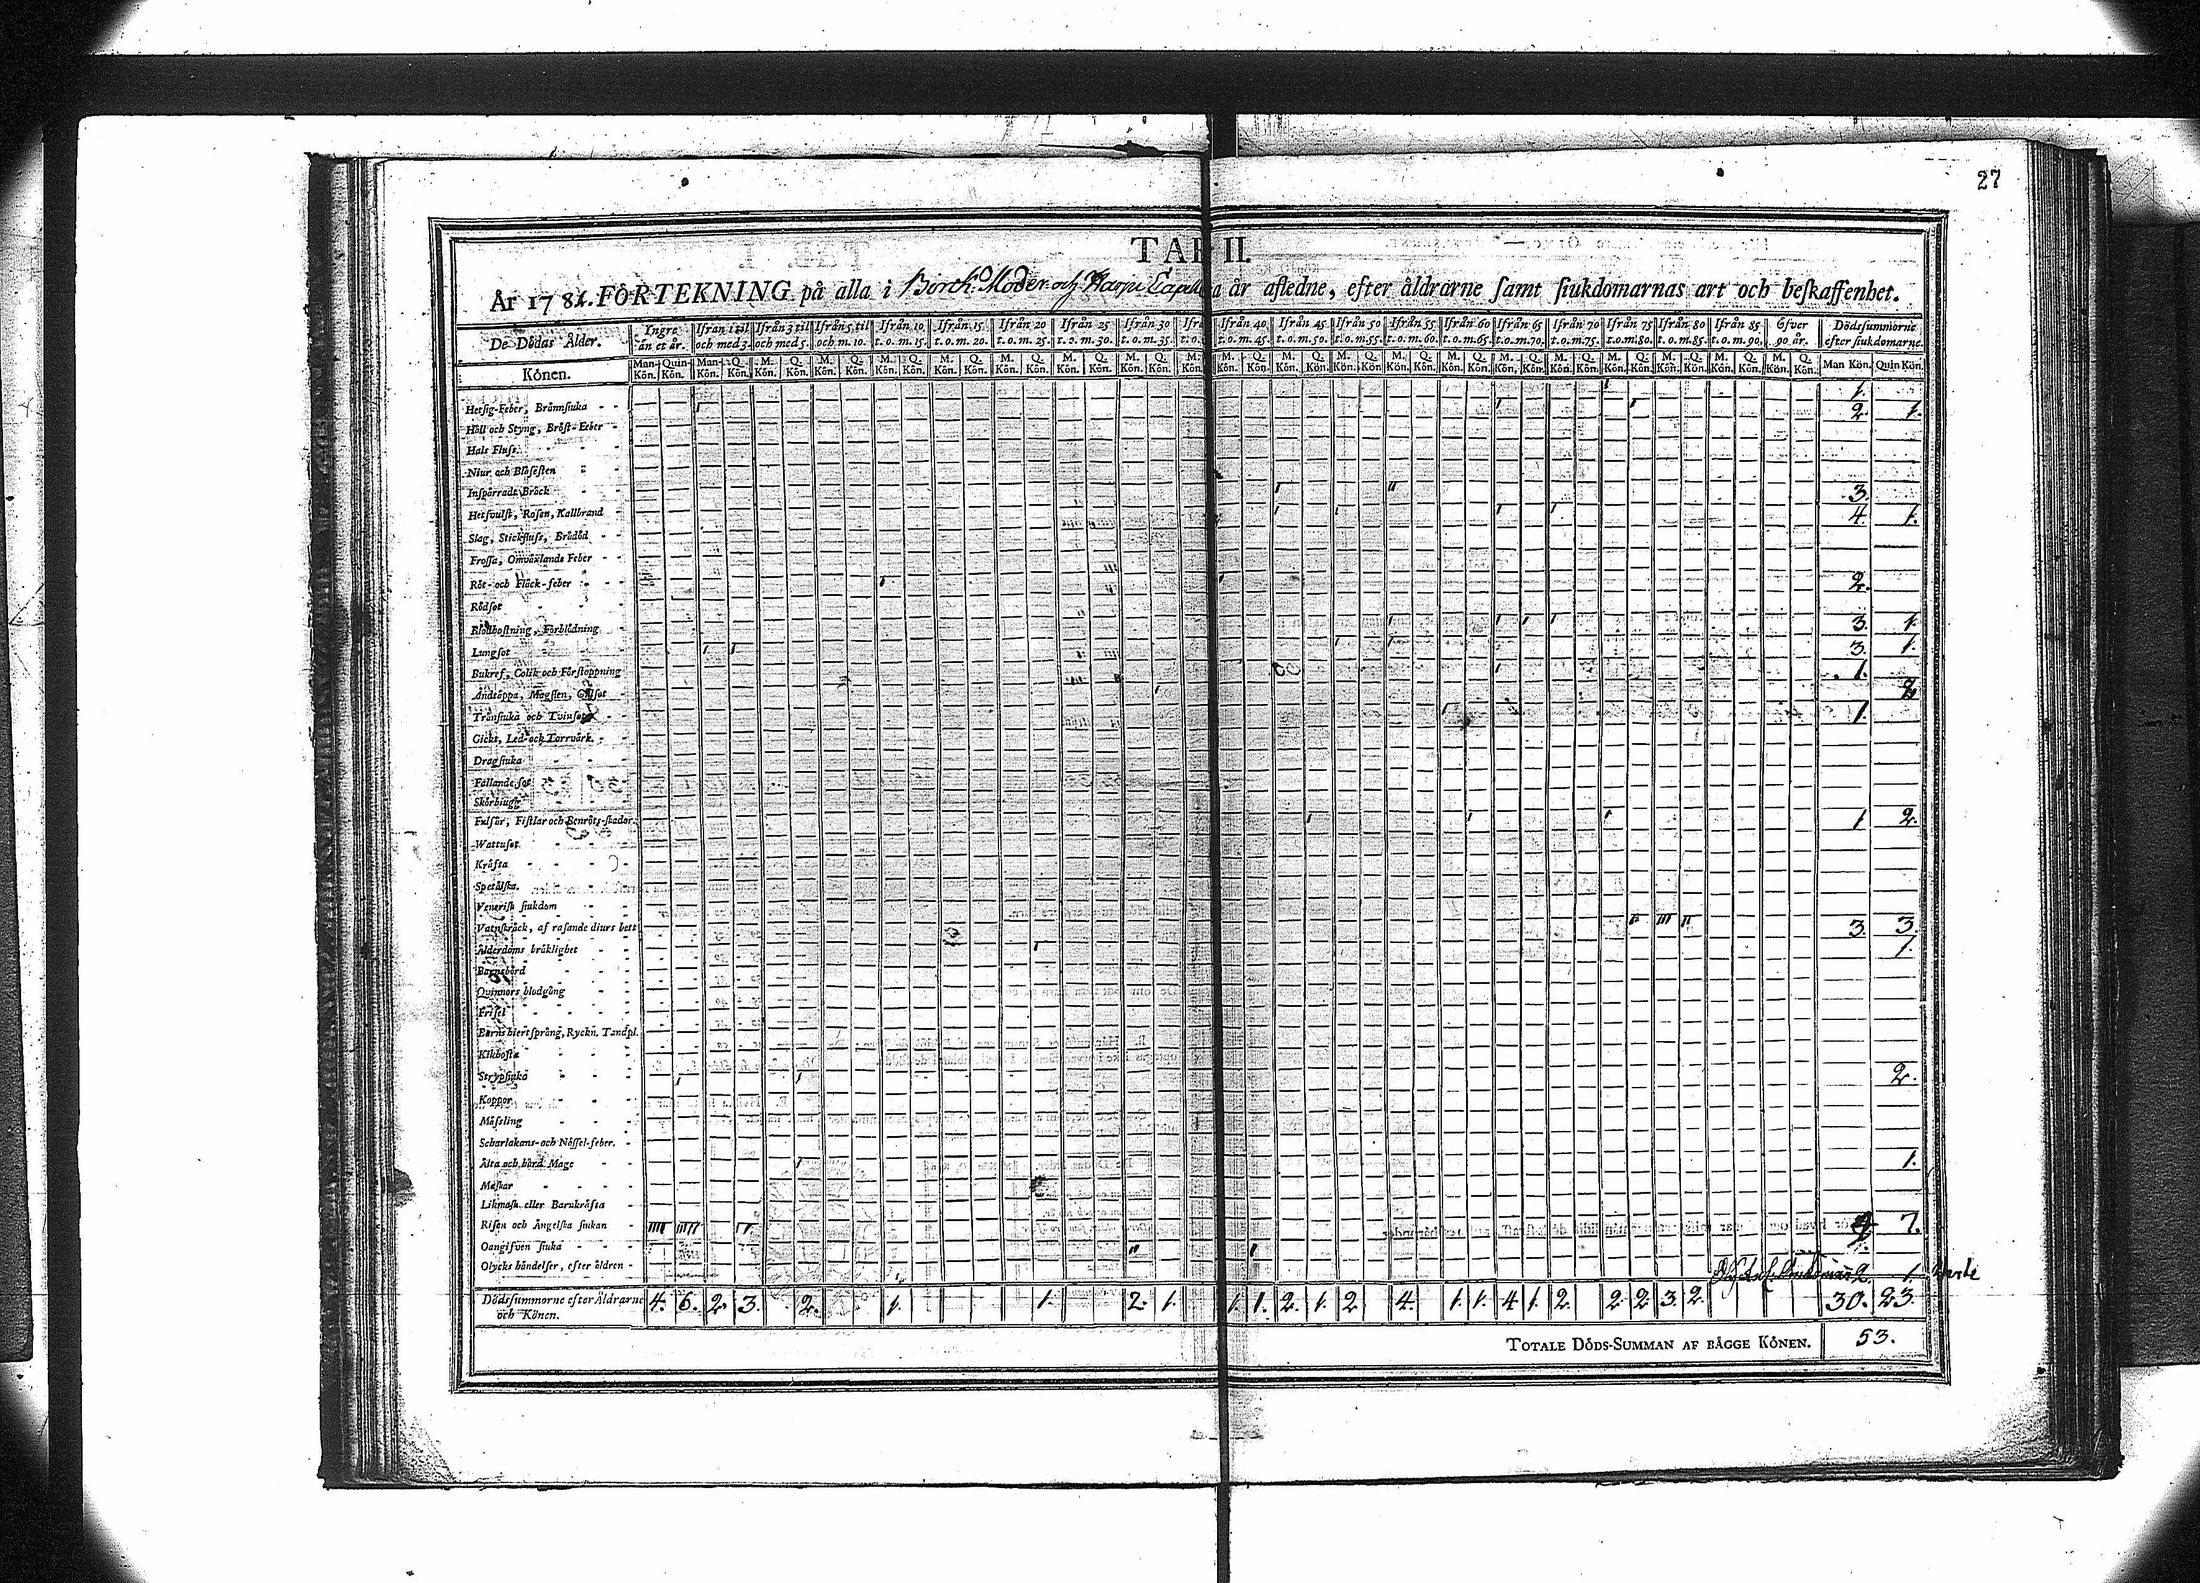 27
TAB II.
År 178 . FÖRTEKNING på alla i Borch Moder och Harju Capell a år afledne, efter åldrarne samt siukdomarnas art och beskaffenhet.
De Dödas Ålder. Yngre än et år. Ifrån 1 til och med 3. Ifrån 3 til och med 5. Ifrån 5 til och m. 10. Ifrån 10 t.o.m. 15. Ifrån 15 t.o.m. 20. Ifrån 20 t.o.m. 25. Ifrån 25 t.o.m. 30. Ifrån 30 t.o.m. 35. Ifrån 40 t.o.m. 45. Ifrån 45 t.o.m. 50. Ifrån 50 t.o.m. 55. Ifrån 55 t.o.m. 60. Ifrån 60 t.o.m. 65. Ifrån 65 t.o.m. 70. Ifrån 70 t.o.m. 75. Ifrån 75 t.o.m. 80. Ifrån 80 t.o.m. 85. Ifrån 85 t.o.m. 90. Öfver 90 år. Dödssummorne efter siukdomarne.
Könen. Man-Kön. Quin-Kön. Man-Kön. Q. Kön. M. Kön. Q. Kön. M. Kön. Q. Kön. M. Kön. Q. Kön. M. Kön. Q. Kön. M. Kön. Q. Kön. M. Kön. Q. Kön. M. Kön. Q. Kön. M. Kön. M. Kön. Q. Kön. M. Kön. Q. Kön. M. Kön. Q. Kön. M. Kön. Q. Kön. M. Kön. Q. Kön. M. Kön. Q. Kön. M. Kön. Q. Kön. M. Kön. Q. Kön. M. Kön. Q. Kön. M. Kön. Q. Kön. M. Kön. Q. Kön. Man Kön. Quin Kön.
1.
Hetsig-Feber, Brännsiuka 2. 1.
Håll och Styng, Bröst-Feber
Hals Fluss
Niur och Blåsesten
Inspärradt Bråck 3.
Hetsvulst, Rosen, Kallbrand 4. 1.
Slag, Stickfluss, Brådöd
Frossa, Omväxlands Feber
Röt- och Fläck-feber 2.
Rödsot
Blodhostning, Förblödning 3. 1.
Lungsot 3. 1.
Bukref, Colik och Förstoppning 1.
Andtäppa, Magsien, Gulsot
Trånsiuka och Tvinsot 1.
Gickt, Led- och Torrvärk
Dragsiuka
Fallande sot
Skörbiugg
Fulsår, Fistlar och Benröts-skador 1 2.
Wattusot
Kräfta
Spetälska
Venerisk siukdom
Vatnskräck, af rasande diurs bett 3. 3.
Ålderdoms bräklighet 1.
Barnsbörd
Qvinnors blodgång
Frisel
Barns hiertsprång, Ryckn. Tandpl.
Kikhosta
Strypsiuka 2.
Koppor
Mässling
Scharlakans- och Nässel-feber.
Älta och hård Mage 1.
Maskar
Likmask eller Barnkräfta
Risen och Ängelska siukan 7.
Oangifven siuka
Olycks händelser, efter åldren 2. 1.
Dödssummorne efter Åldrarne och Könen. 4. 6. 2. 3. 2. 1. 1. 2. 1. 1. 1. 2. 1. 2. 4. 1. 1. 4. 1. 2. 2. 2. 3. 2. 30. 23.
TOTALE DÖDS-SUMMAN AF BÄGGE KÖNEN. 53.